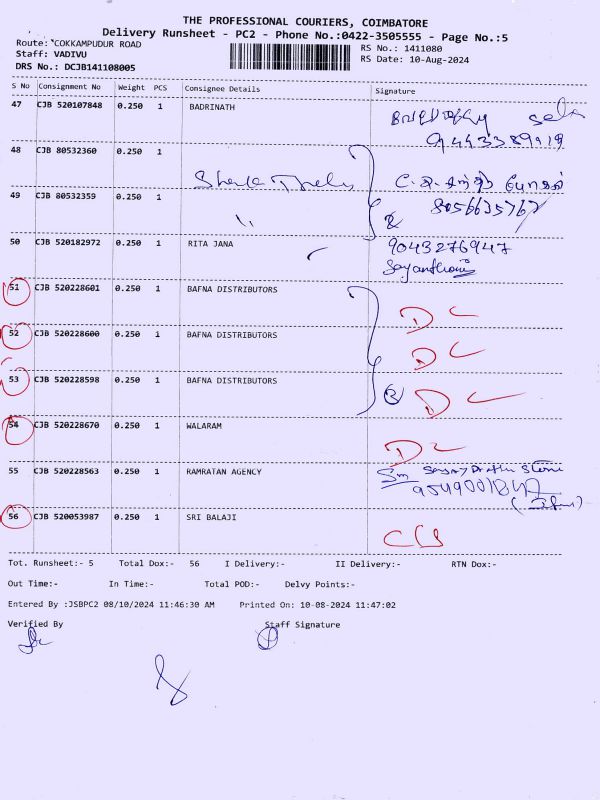 THE PROFESSIONAL COURIERS, COIMBATORE
Delivery Runsheet - PC2 - Phone No.:0422-3505555 - Page No.:5
Route: COKKAMPUDUR ROAD
Staff: VADIVU
DRS No.: DCJB141108005
RS No.: 1411080
RS Date: 10-Aug-2024
S No Consignment No Weight PCS Consignee Details Signature
47 CJB 520107848 0.250 1 BADRINATH
9443389119
48 CJB 80532360 0.250 1
49 CJB 80532359 0.250 1
8056635767
50 CJB 520182972 0.250 1 RITA JANA 9043276947
51 CJB 520228601 0.250 1 BAFNA DISTRIBUTORS DC
52 CJB 520228600 0.250 1 BAFNA DISTRIBUTORS DC
53 CJB 520228598 0.250 1 BAFNA DISTRIBUTORS DC
54 CJB 520228670 0.250 1 WALARAM DC
55 CJB 520228563 0.250 1 RAMRATAN AGENCY
56 CJB 520053987 0.250 1 SRI BALAJI
Tot. Runsheet:- 5 Total Dox:- 56 I Delivery:- II Delivery:- RTN Dox:-
Out Time:- In Time:- Total POD:- Delvy Points:-
Entered By :JSBPC2 08/10/2024 11:46:30 AM Printed On: 10-08-2024 11:47:02
Verified By Staff Signature